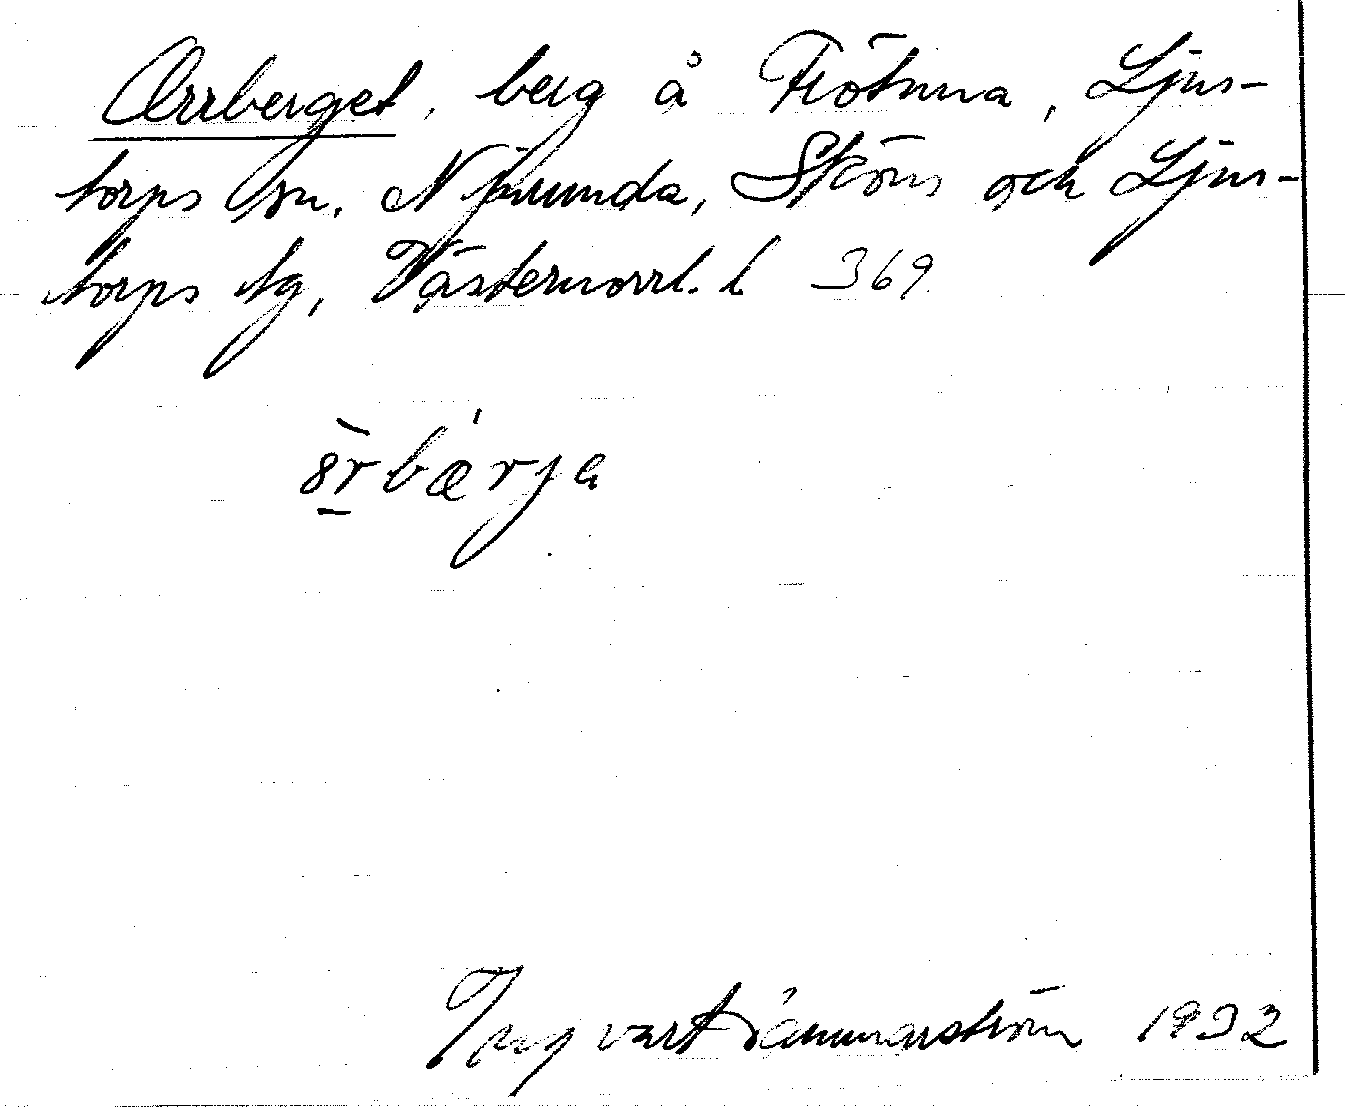 Orrberget, berg å Frötuna, Ljus-
torps sn. Njurunda, Sköns och Ljus-
torps tg, Västernorrl. l 369
ørbærja
Ingvar Hammarström 1932